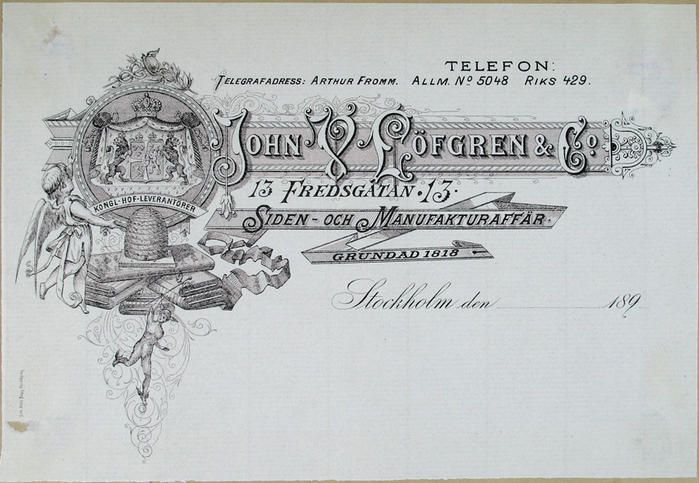 TELEFON:
TELEGRAFADRESS: ARTHUR FROMM. ALLM. No 5048 RIKS 429.
JOHN V. LÖFGREN & Co.
13 FREDSGATAN 13.
KONGL-HOF-LEVERANTÖRER
SIDEN- OCH MANUFAKTURAFFÄR.
GRUNDAD 1818
Stockholm den 189